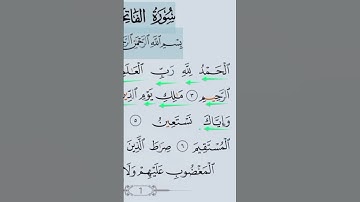 سُورَةُ الفَاتِ
بِسْمِ اللَّهِ الرَّحْمَٰنِ
الْحَمْدُ لِلَّهِ رَبِّ الْعَالَ
الرَّحِيمِ ٣ مَالِكِ يَوْمِ الدِّ
وَإِيَّاكَ نَسْتَعِينُ ٥
الْمُسْتَقِيمَ ٦ صِرَاطَ الَّذِينَ
الْمَغْضُوبِ عَلَيْهِمْ وَلَا
1